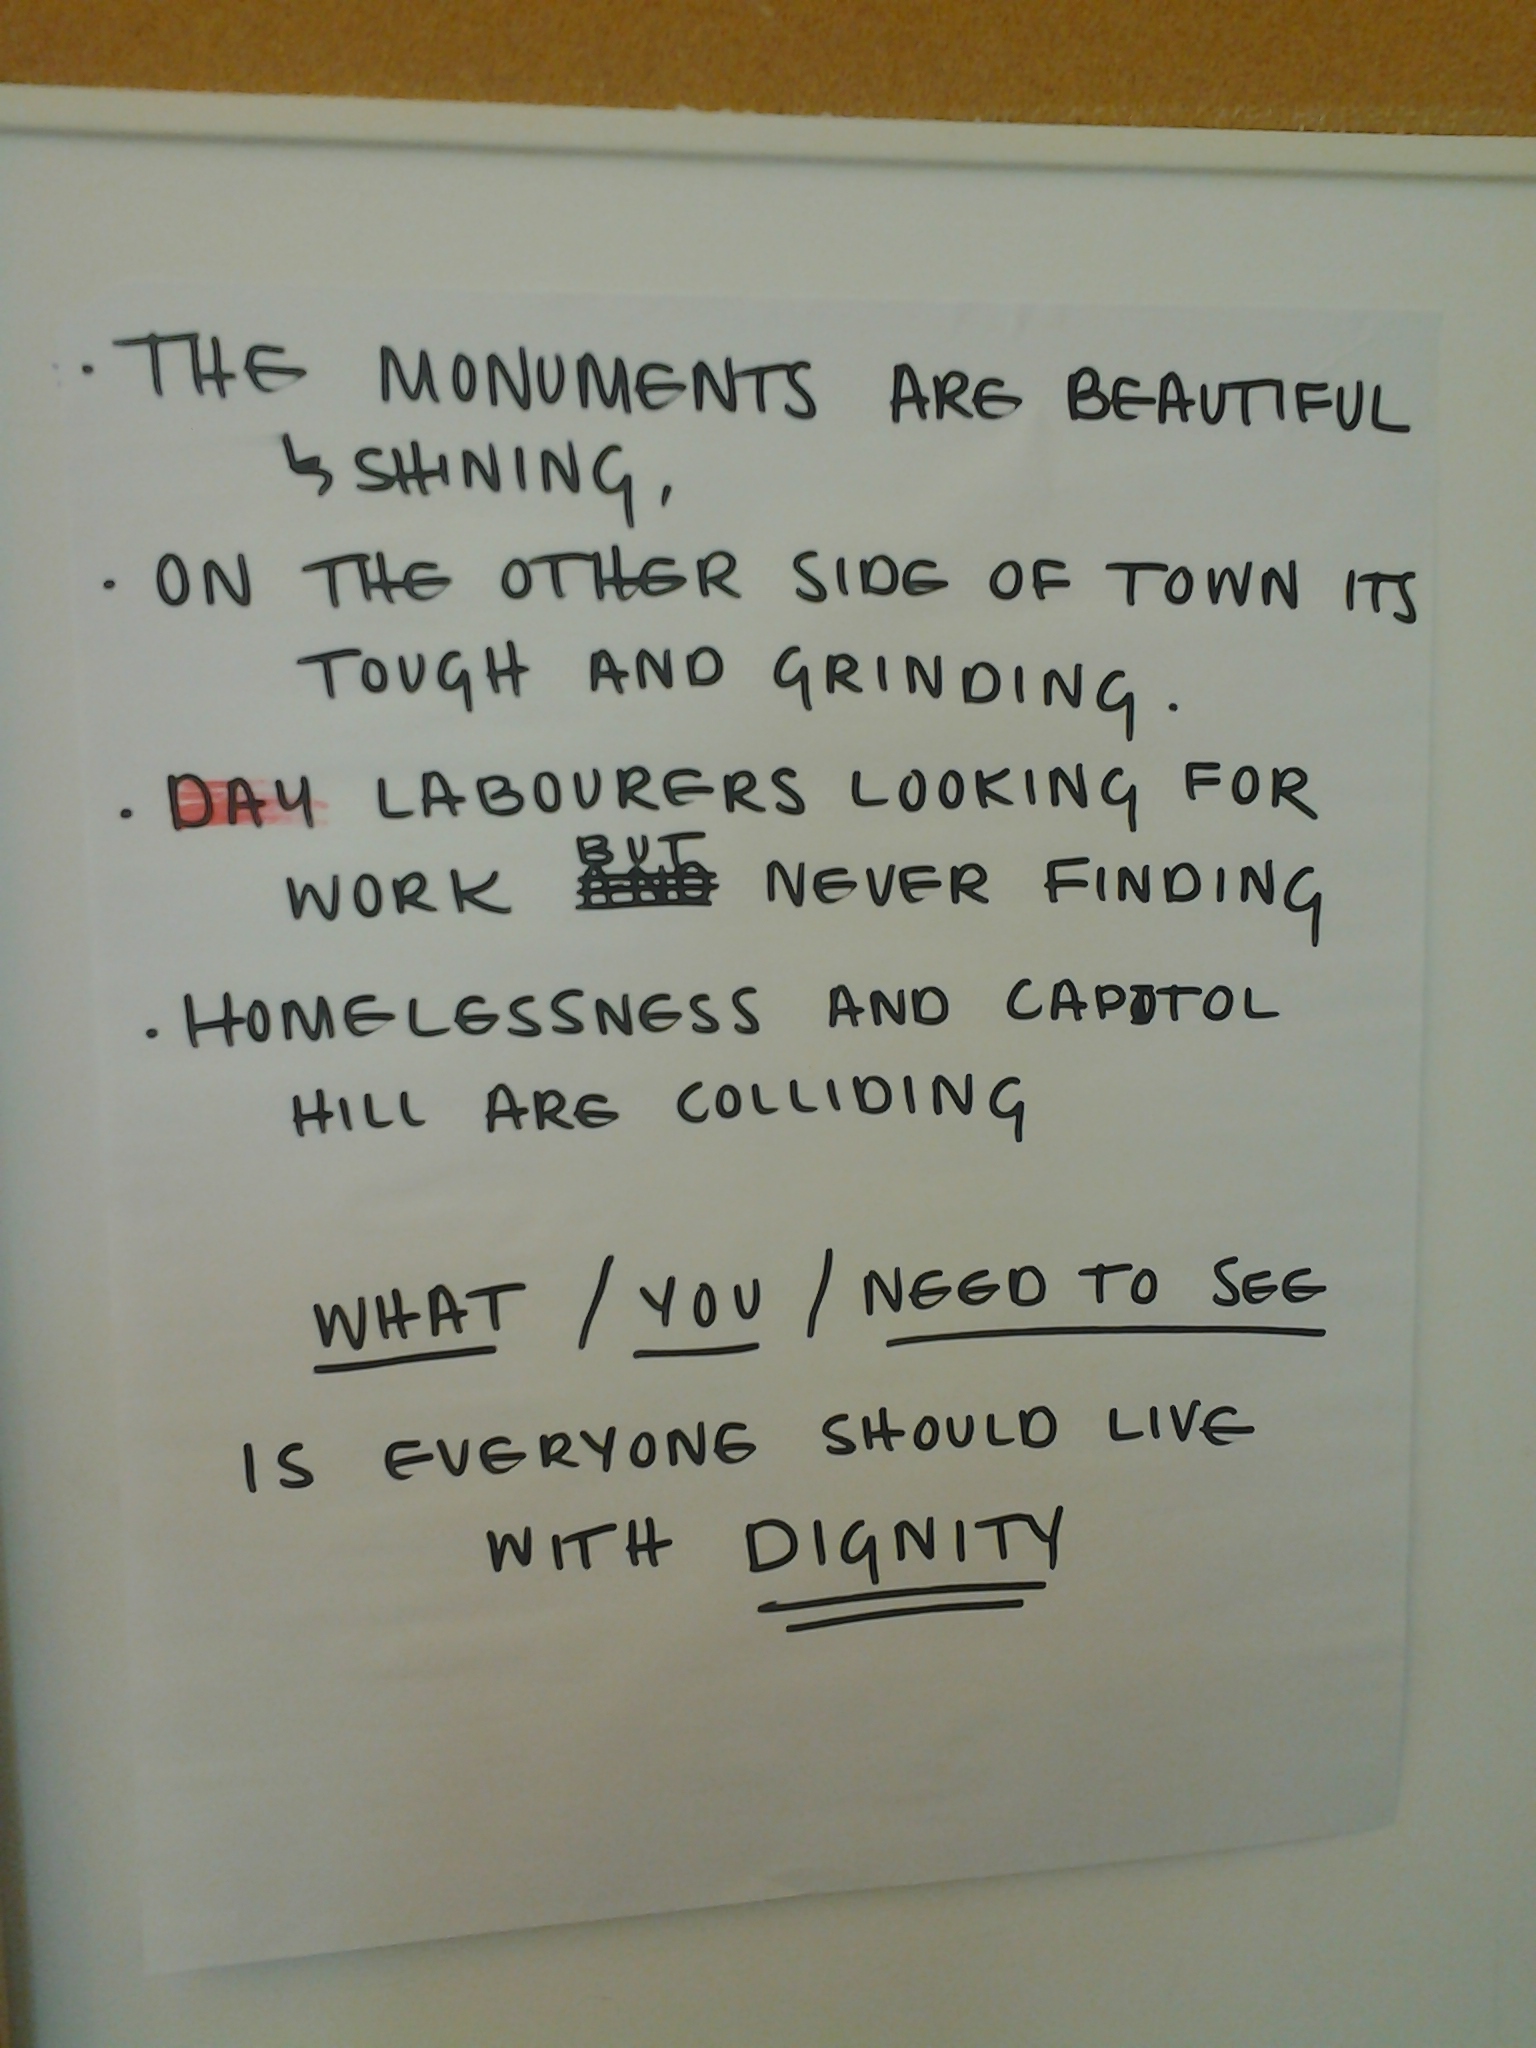 · THE MONUMENTS ARE BEAUTIFUL
↳ SHINING,
· ON THE OTHER SIDE OF TOWN ITS
TOUGH AND GRINDING.
· DAY LABOURERS LOOKING FOR
WORK BUT NEVER FINDING
· HOMELESSNESS AND CAPITOL
HILL ARE COLLIDING
WHAT / YOU / NEED TO SEE
IS EVERYONE SHOULD LIVE
WITH DIGNITY